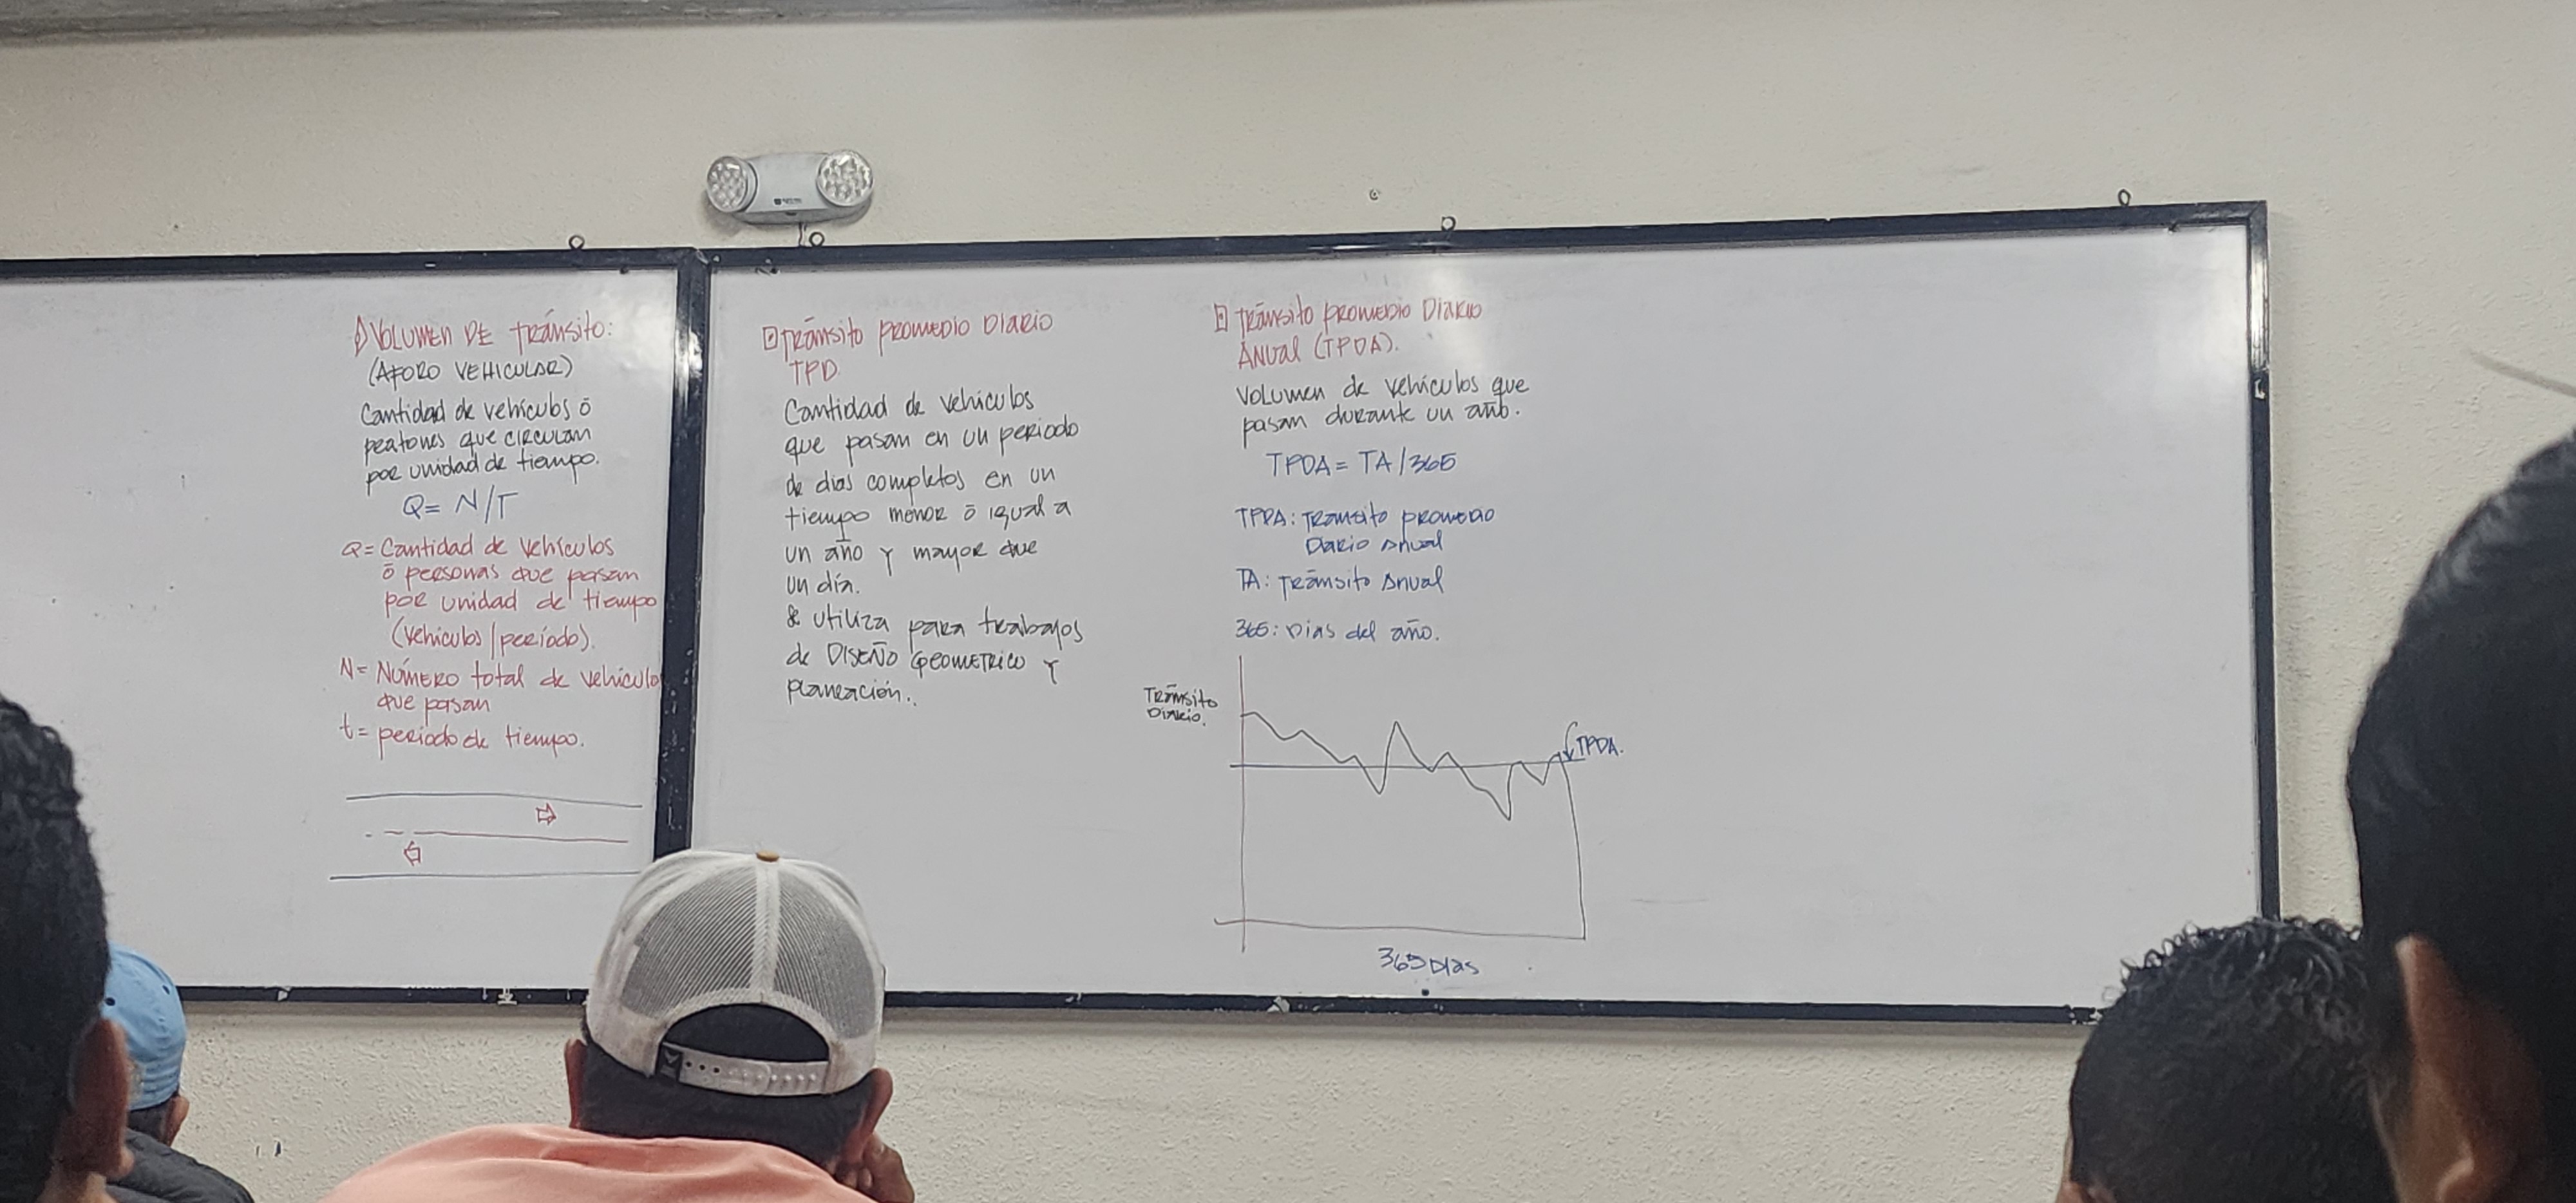 VOLUMEN DE tránsito:
(AFORO VEHICULAR)
Cantidad de vehículos ó
peatones que circulan
por unidad de tiempo.
Q= N/T
Q= Cantidad de vehículos
ó personas que pasan
por unidad de tiempo
(vehículos/período).
N= NÚMERO total de vehiculo
que pasan
t= periodo de tiempo.
Tránsito PROMEDIO DIARIO
TPD
Cantidad de vehiculos
que pasan en un periodo
de dias completos en un
tiempo menor ó igual a
un año y mayor que
un día.
Se utiliza para trabajos
de DISEÑO GEOMETRICO Y
planeación..
Tránsito PROMEDIO DIARIO
ANUAL (TPDA).
Volumen de vehículos que
pasan durante un año.
TPDA= TA/365
TPDA: Transito promedio
Diario Anual
TA: Tránsito Anual
365: Dias del año.
Tránsito
Diario.
TPDA.
365 Dias